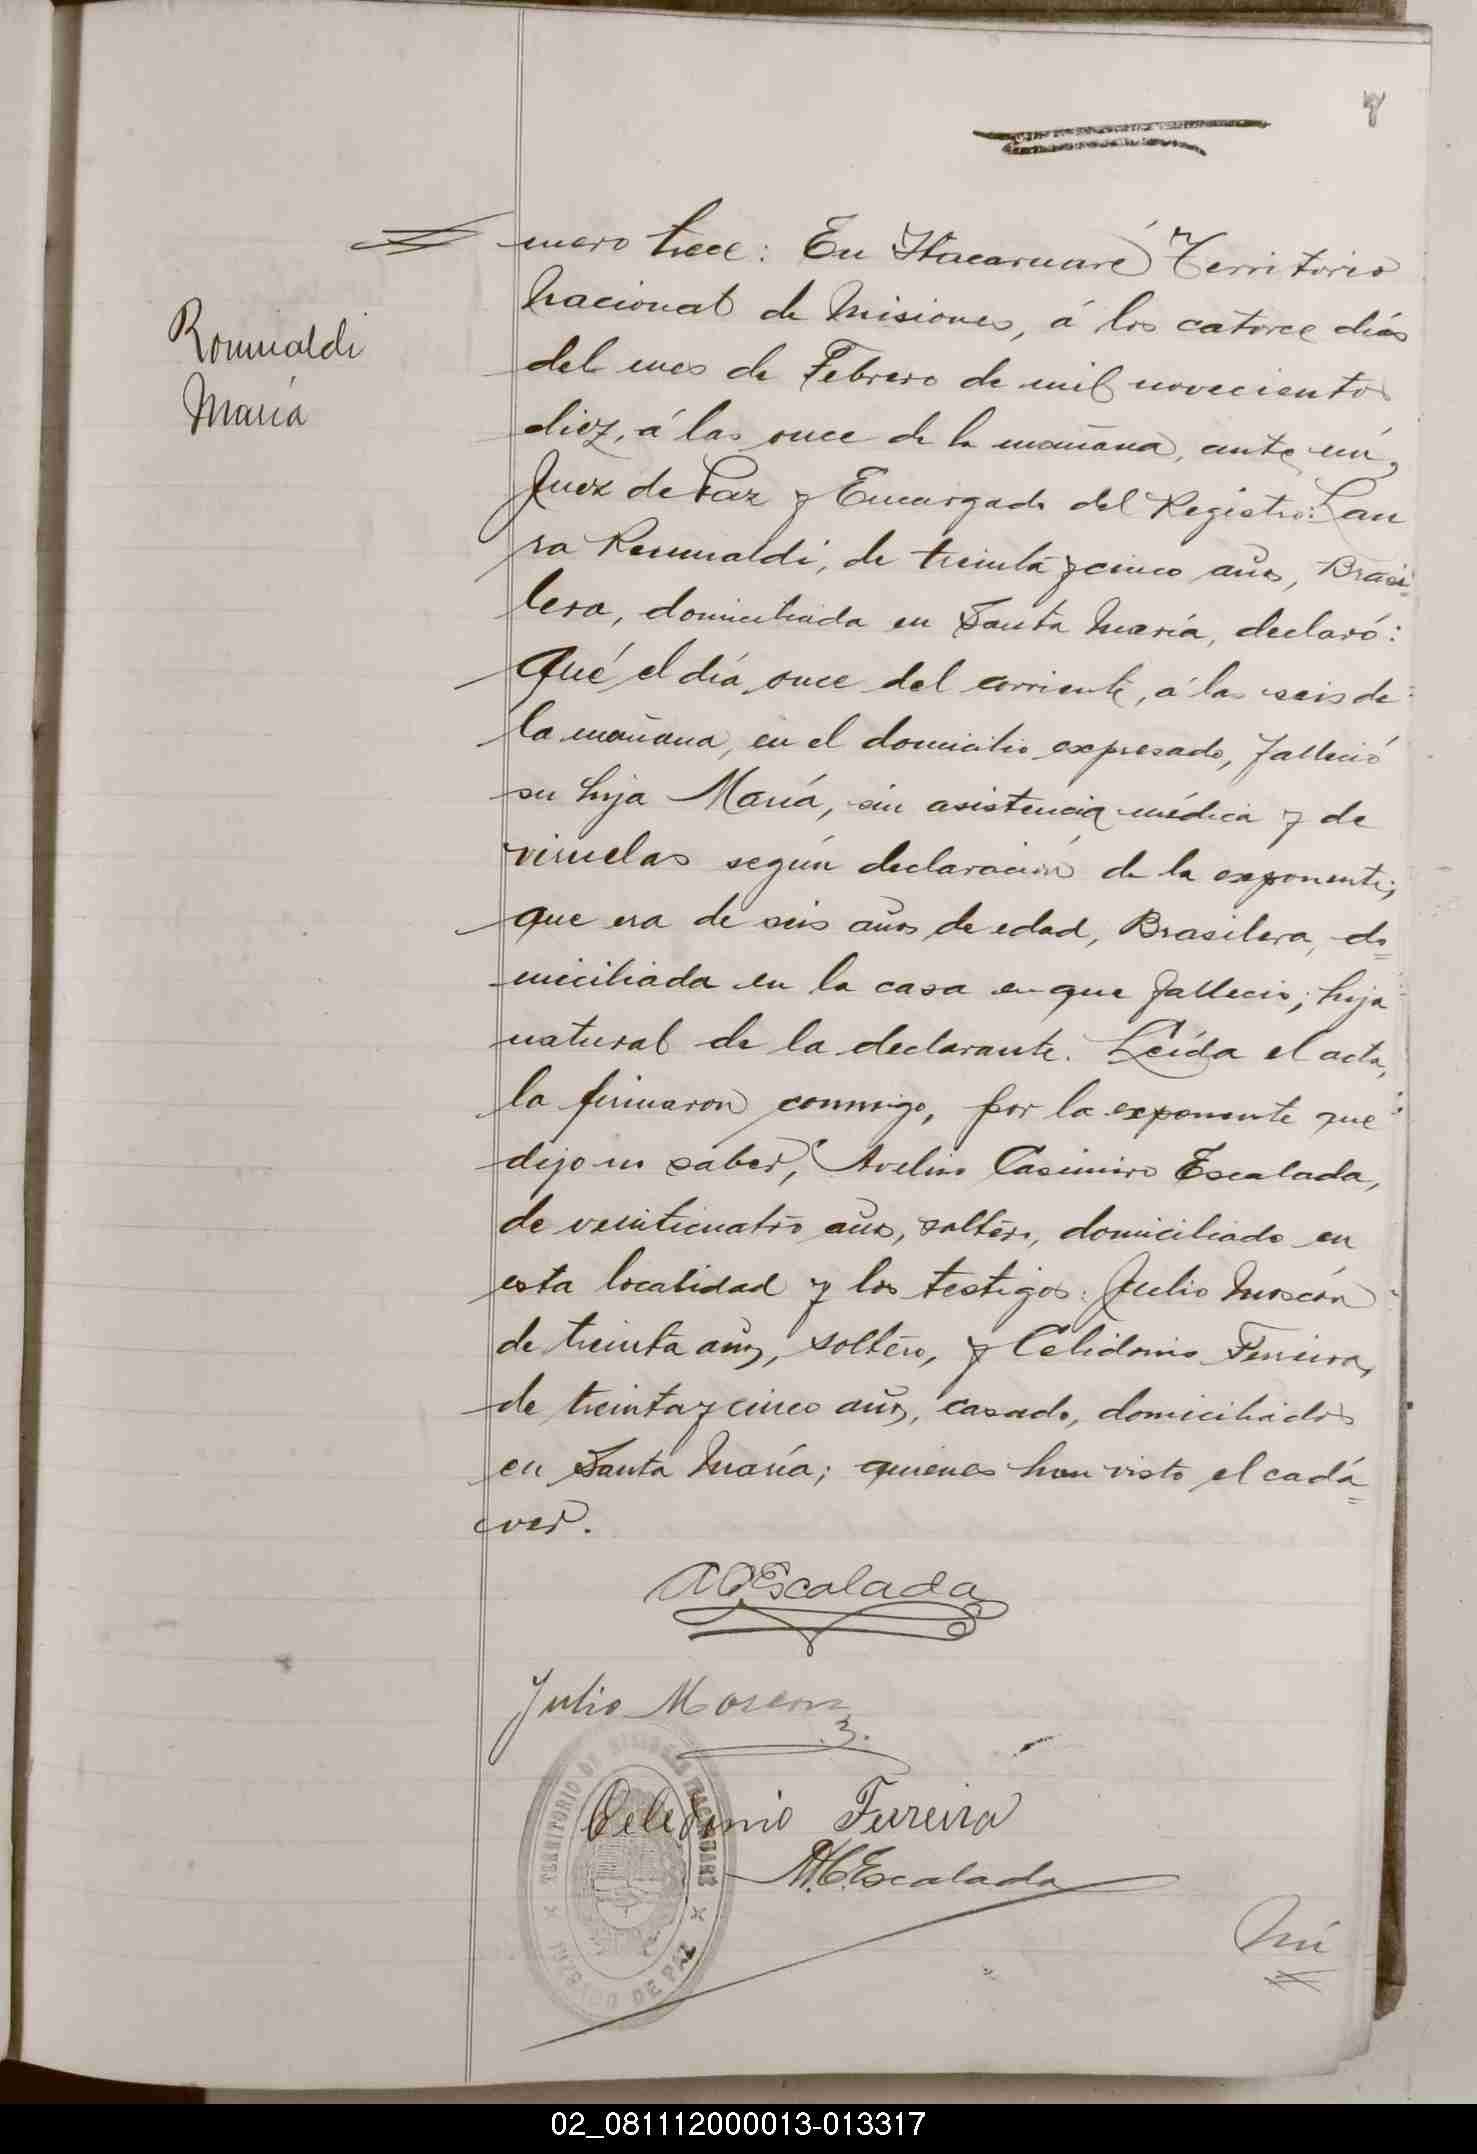 7
mero trece: En Itacaruaré Territorio
Nacional de Misiones, á los catorce días
Romualdi
María
del mes de Febrero de mil novecientos
diez, á las once de la mañana, ante mí,
Juez de Paz y Encargado del Registro: Lau
ra Romualdi, de treinta y cinco años, Brasi-
lera, domiciliada en Santa María, declaró:
Qué el día once del corriente, á las seis de
la mañana, en el domicilio expresado, falleció
su hija María, sin asistencia médica y de
viruelas según declaración de la exponente;
que era de seis años de edad, Brasilera, do=
miciliada en la casa en que falleció; hija
natural de la declarante. Leída el acta,
la firmaron conmigo, por la exponente que
dijo no saber, Avelino Casimiro Escalada,
de veinticuatro años, soltero, domiciliado en
esta localidad y los testigos: Julio Moscón
de treinta años, soltero, y Celidonio Ferreira,
de treinta y cinco años, casado, domiciliados
en Santa María; quienes han visto el cadá
=
ver.
A C Escalada
Julio Moscon
Celedonio Ferreira
M.C. Escalada
TERRITORIO DE MISIONES ITACARUARÉ
JUZGADO DE PAZ
Nú
02_081112000013-013317